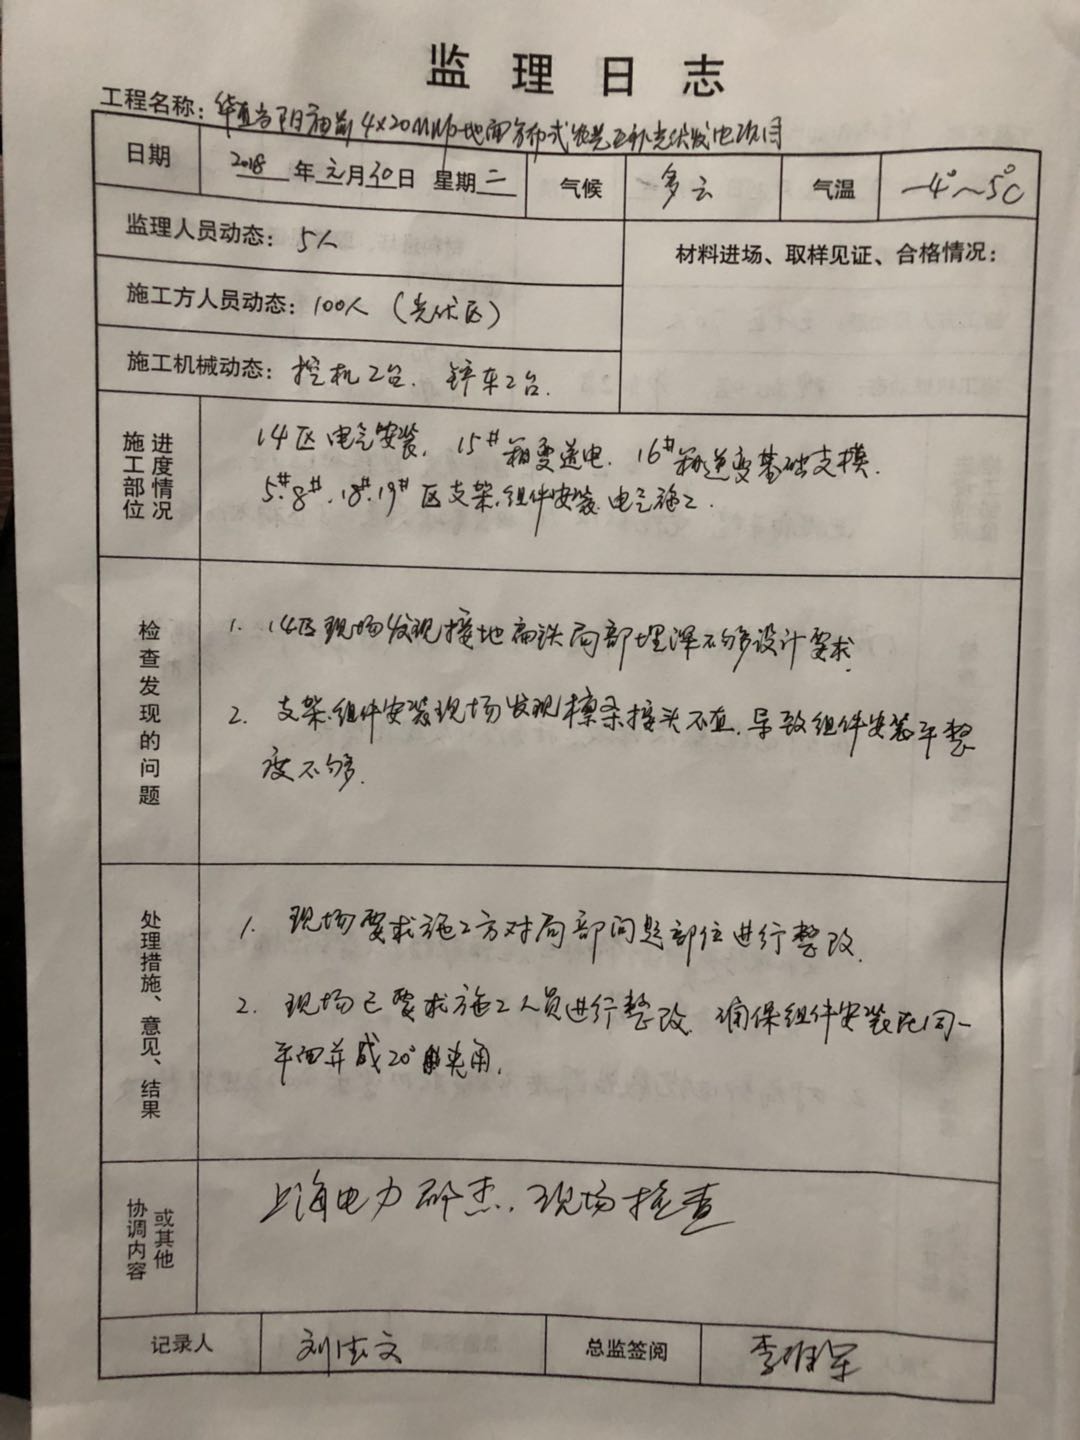 监理日志
工程名称：华直当阳庙前4×20MWp地面分布式农光互补光伏发电项目
日期 2018年元月30日 星期二 气候 多云 气温 -4°～5°C
监理人员动态：5人
材料进场、取样见证、合格情况：
施工方人员动态：100人（光伏区）
施工机械动态：挖机2台. 铲车2台.
施工部位进度情况
14区电气安装，15#箱变送电. 16#箱逆变基础支模.
5#.8#.18#.19#区支架.组件安装.电气施工.
检查发现的问题
1. 14区现场发现接地扁铁局部埋深不够设计要求.
2. 支架.组件安装现场发现檩条接头不直.导致组件安装平整
度不够.
处理措施、意见、结果
1. 现场要求施工方对局部问题部位进行整改.
2. 现场已要求施工人员进行整改.确保组件安装在同一
平面并成20°夹角.
协调内容或其他
上海电力 杰.现场检查
记录人 刘 文 总监签阅 李 军